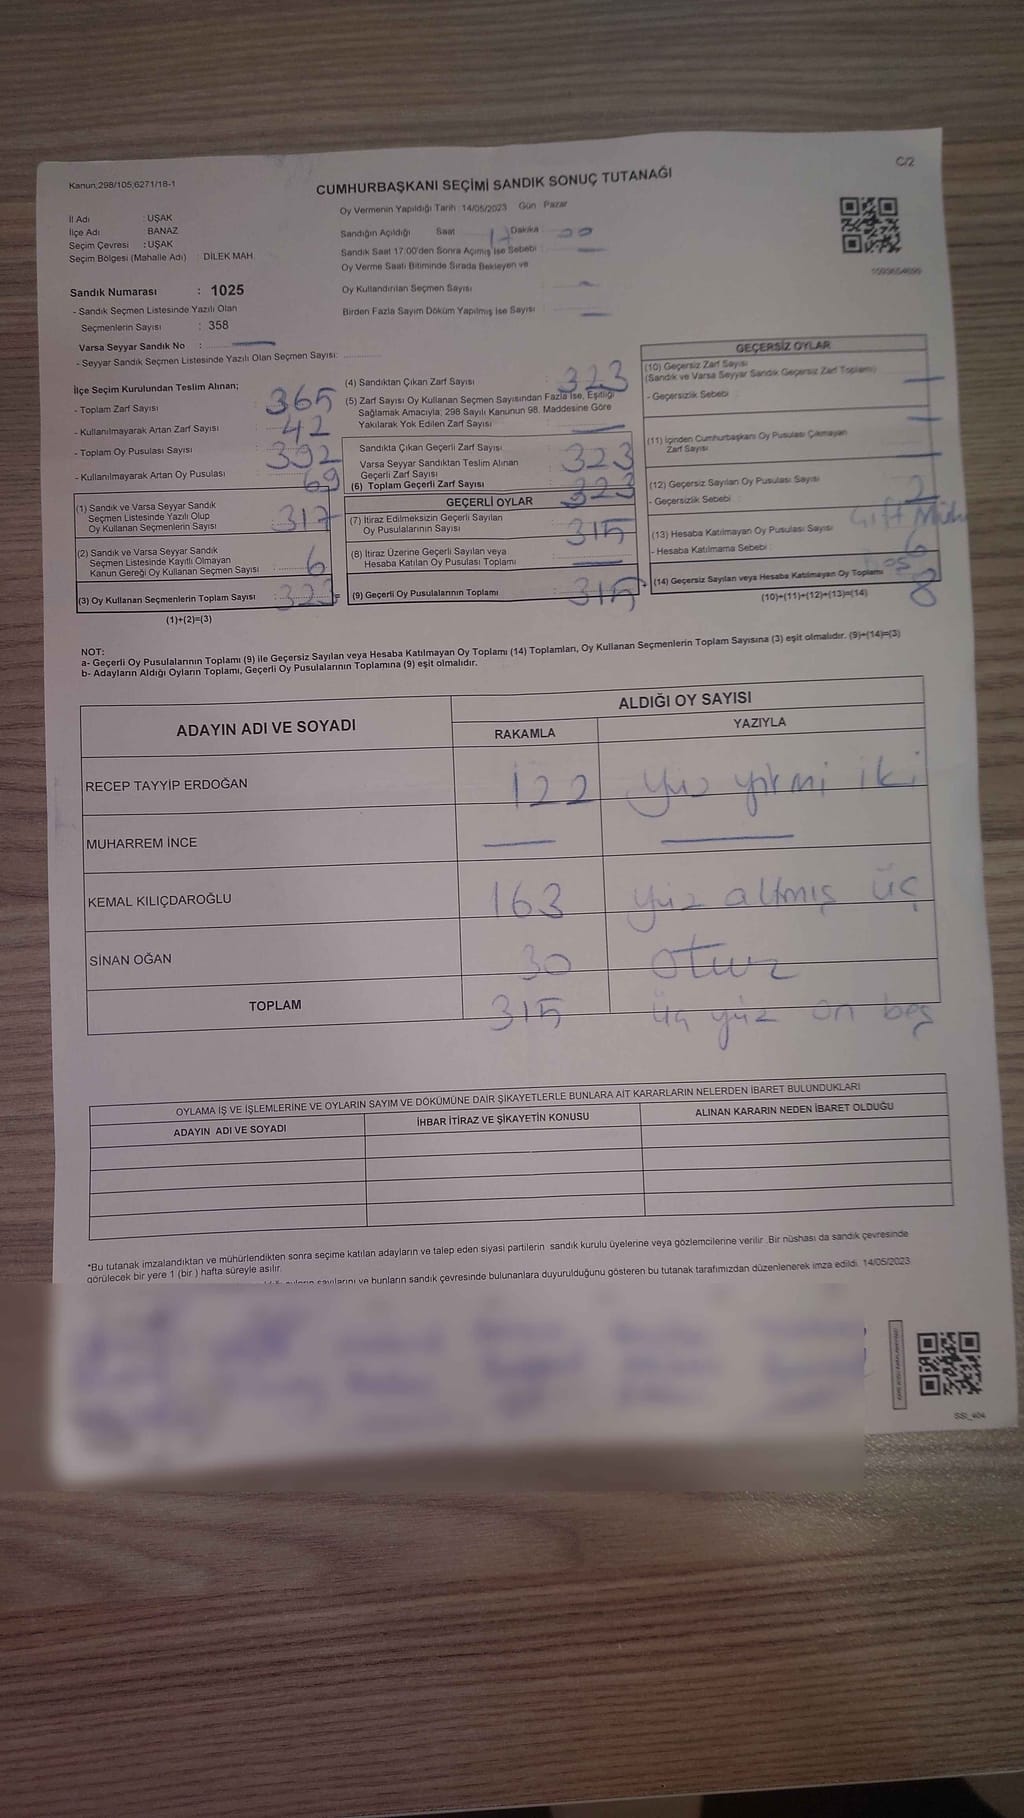 C/2
Kanun,298/105,6271/18-1
CUMHURBAŞKANI SEÇİMİ SANDIK SONUÇ TUTANAĞI
Oy Vermenin Yapıldığı Tarih : 14/05/2023 Gün : Pazar
İl Adı : UŞAK
İlçe Adı : BANAZ
Seçim Çevresi : UŞAK
Seçim Bölgesi (Mahalle Adı) : DİLEK MAH.
Sandığın Açıldığı Saat 17 Dakika : 00
Sandık Saat 17:00'den Sonra Açılmış İse Sebebi : —
Oy Verme Saati Bitiminde Sırada Bekleyen ve
Oy Kullandırılan Seçmen Sayısı : —
Birden Fazla Sayım Döküm Yapılmış İse Sayısı : —
Sandık Numarası : 1025
- Sandık Seçmen Listesinde Yazılı Olan
Seçmenlerin Sayısı : 358
Varsa Seyyar Sandık No : —
- Seyyar Sandık Seçmen Listesinde Yazılı Olan Seçmen Sayısı:
İlçe Seçim Kurulundan Teslim Alınan;
- Toplam Zarf Sayısı : 365
- Kullanılmayarak Artan Zarf Sayısı : 42
- Toplam Oy Pusulası Sayısı : 392
- Kullanılmayarak Artan Oy Pusulası : 69
(1) Sandık ve Varsa Seyyar Sandık
Seçmen Listesinde Yazılı Olup
Oy Kullanan Seçmenlerin Sayısı : 317
(2) Sandık ve Varsa Seyyar Sandık
Seçmen Listesinde Kayıtlı Olmayan
Kanun Gereği Oy Kullanan Seçmen Sayısı : 6
(3) Oy Kullanan Seçmenlerin Toplam Sayısı : 323
(1)+(2)=(3)
(4) Sandıktan Çıkan Zarf Sayısı : 323
(5) Zarf Sayısı Oy Kullanan Seçmen Sayısından Fazla İse, Eşitliği
Sağlamak Amacıyla, 298 Sayılı Kanunun 98. Maddesine Göre
Yakılarak Yok Edilen Zarf Sayısı : —
Sandıkta Çıkan Geçerli Zarf Sayısı : 323
Varsa Seyyar Sandıktan Teslim Alınan
Geçerli Zarf Sayısı
(6) Toplam Geçerli Zarf Sayısı : 323
GEÇERLİ OYLAR
(7) İtiraz Edilmeksizin Geçerli Sayılan
Oy Pusulalarının Sayısı : 315
(8) İtiraz Üzerine Geçerli Sayılan veya
Hesaba Katılan Oy Pusulası Toplamı : —
(9) Geçerli Oy Pusulalarının Toplamı : 315
GEÇERSİZ OYLAR
(10) Geçersiz Zarf Sayısı
(Sandık ve Varsa Seyyar Sandık Geçersiz Zarf Toplamı) —
- Geçersizlik Sebebi : —
(11) İçinden Cumhurbaşkanı Oy Pusulası Çıkmayan
Zarf Sayısı —
(12) Geçersiz Sayılan Oy Pusulası Sayısı : 2
- Geçersizlik Sebebi : Çift Müh
(13) Hesaba Katılmayan Oy Pusulası Sayısı : 6
- Hesaba Katılmama Sebebi :
(14) Geçersiz Sayılan veya Hesaba Katılmayan Oy Toplamı : 8
(10)+(11)+(12)+(13)=(14)
NOT:
a- Geçerli Oy Pusulalarının Toplamı (9) ile Geçersiz Sayılan veya Hesaba Katılmayan Oy Toplamı (14) Toplamları, Oy Kullanan Seçmenlerin Toplam Sayısına (3) eşit olmalıdır. (9)+(14)=(3)
b- Adayların Aldığı Oyların Toplamı, Geçerli Oy Pusulalarının Toplamına (9) eşit olmalıdır.
ADAYIN ADI VE SOYADI ALDIĞI OY SAYISI
RAKAMLA YAZIYLA
RECEP TAYYİP ERDOĞAN 122 yüz yirmi iki
MUHARREM İNCE — —
KEMAL KILIÇDAROĞLU 163 yüz altmış üç
SİNAN OĞAN 30 otuz
TOPLAM 315 üç yüz on beş
OYLAMA İŞ VE İŞLEMLERİNE VE OYLARIN SAYIM VE DÖKÜMÜNE DAİR ŞİKAYETLERLE BUNLARA AİT KARARLARIN NELERDEN İBARET BULUNDUKLARI
ADAYIN ADI VE SOYADI İHBAR İTİRAZ VE ŞİKAYETİN KONUSU ALINAN KARARIN NEDEN İBARET OLDUĞU
*Bu tutanak imzalandıktan ve mühürlendikten sonra seçime katılan adayların ve talep eden siyasi partilerin sandık kurulu üyelerine veya gözlemcilerine verilir .Bir nüshası da sandık çevresinde
görülecek bir yere 1 (bir ) hafta süreyle asılır.
sayılarını ve bunların sandık çevresinde bulunanlara duyurulduğunu gösteren bu tutanak tarafımızdan düzenlenerek imza edildi. 14/05/2023
SSI_404